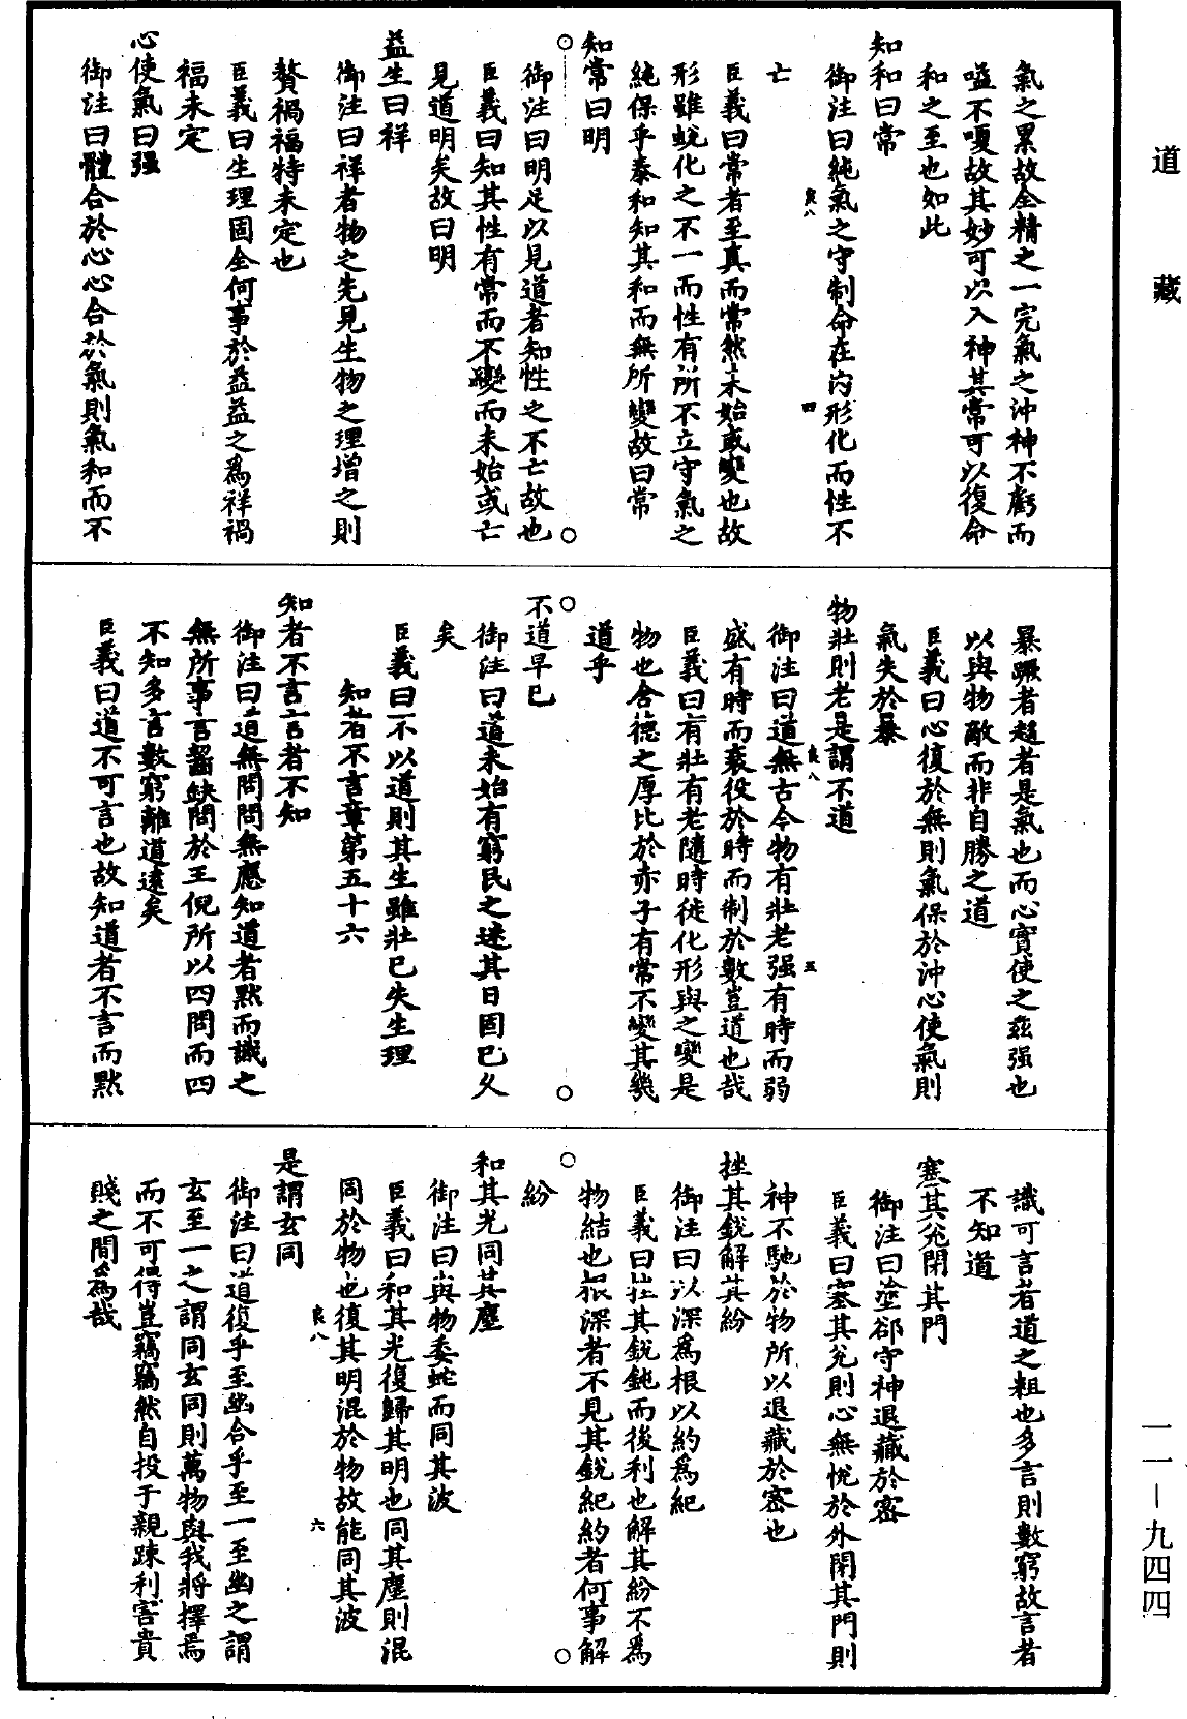 道藏
氣之累故全精之一完氣之沖神不虧而
嗌不嗄故其妙可以入神其常可以復命
和之至也如此
知和曰常
御注曰純氣之守制命在內形化而性不
良八
四
亡
臣義曰常者至真而常然未始或變也故
形雖蛻化之不一而性有所不立守氣之
純保乎泰和知其和而無所變故曰常
知常曰明
御注曰明足以見道者知性之不亡故也
臣義曰知其性有常而不變而未始或亡
見道明矣故曰明
益生曰祥
御注曰祥者物之先見生物之理增之則
贅禍福特未定也
臣義曰生理固全何事於益益之為祥禍
福未定
心使氣曰强
御注曰體合於心心合於氣則氣和而不
暴蹶者趨者是氣也而心實使之茲强也
以與物敵而非自勝之道
臣義曰心復於無則氣保於沖心使氣則
氣失於暴
物壯則老是謂不道
良八
五
御注曰道無古今物有壯老强有時而弱
盛有時而衰役於時而制於數豈道也哉
臣義曰有壯有老隨時徒化形與之變是
物也含德之厚比於赤子有常不變其幾
道乎
不道早已
御注曰道未始有窮民之迷其日固已久
矣
臣義曰不以道則其生雖壯已失生理
知者不言章第五十六
知者不言言者不知
御注曰道無問問無應知道者默而識之
無所事言齧缺問於王倪所以四問而四
不知多言數窮離道遠矣
臣義曰道不可言也故知道者不言而默
識可言者道之粗也多言則數窮故言者
不知道
塞其兌閉其門
御注曰塗郤守神退藏於密
臣義曰塞其兌則心無悅於外閉其門則
神不馳於物所以退藏於密也
挫其銳解其紛
御注曰以深為根以約為紀
臣義曰挫其銳鈍而後利也解其紛不為
物結也根深者不見其銳紀約者何事解
紛
和其光同其塵
御注曰與物委蛇而同其波
臣義曰和其光復歸其明也同其塵則混
同於物也復其明混於物故能同其波
良八
六
是謂玄同
御注曰道復乎至幽合乎至一至幽之謂
玄至一之謂同玄同則萬物與我將擇焉
而不可得豈竊竊然自投于親踈利害貴
賤之間為哉
一一—九四四